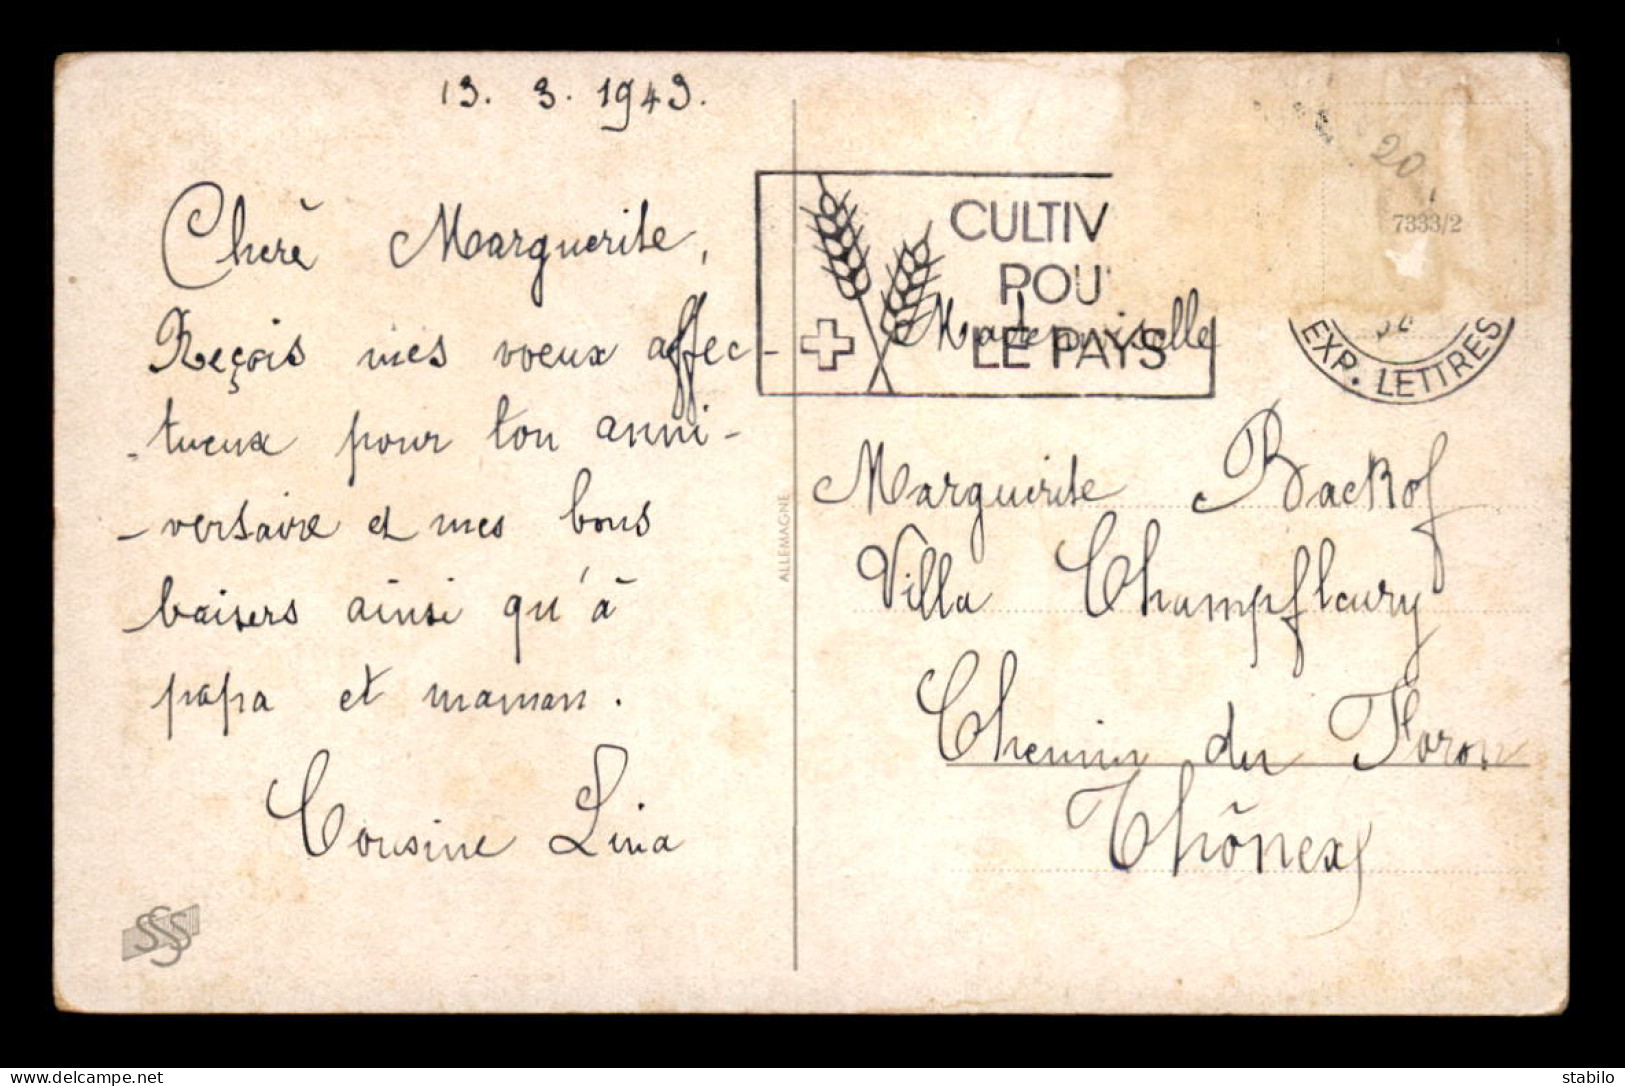 13. 3. 1943.
Cherè Marguerite,
Reçois mes voeux affec-
-tueux pour ton anni-
-versaire et mes bons
baisers ainsi qu'à
papa et maman.
Cousine Lina
SSS
ALLEMAGNE
CULTIV
POU
LE PAYS
20
7333/2
EXP. LETTRES
Mademoiselle
Marguerite Backof
Villa Champfleury
Chemin du Foron
Thônex
www.delcampe.net
stabilo